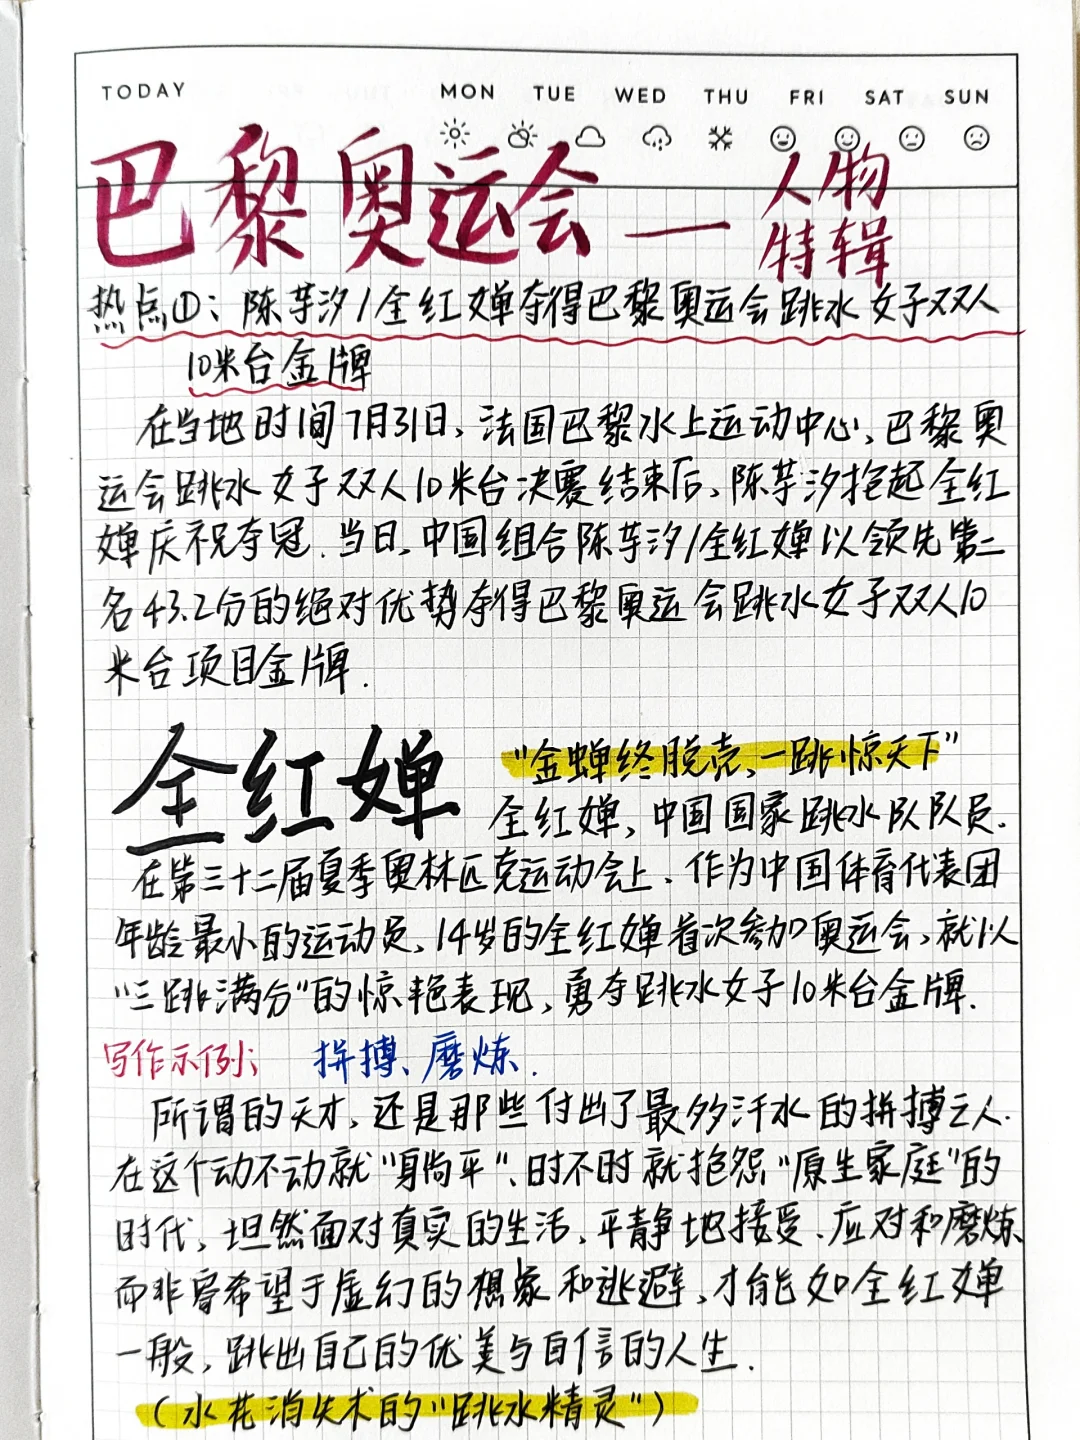 TODAY MON TUE WED THU FRI SAT SUN
巴黎奥运会—人物
特辑
热点①：陈芋汐/全红婵夺得巴黎奥运会跳水女子双人
10米台金牌
在当地时间7月31日，法国巴黎水上运动中心，巴黎奥
运会跳水女子双人10米台决赛结束后，陈芋汐抱起全红
婵庆祝夺冠.当日，中国组合陈芋汐/全红婵以领先第二
名43.2分的绝对优势夺得巴黎奥运会跳水女子双人10
米台项目金牌.
全红婵
“金蝉终脱壳，一跳惊天下”
全红婵，中国国家跳水队队员.
在第三十二届夏季奥林匹克运动会上，作为中国体育代表团
年龄最小的运动员，14岁的全红婵首次参加奥运会，就以
“三跳满分”的惊艳表现，勇夺跳水女子10米台金牌.
写作示例：拼搏、磨炼.
所谓的天才，还是那些付出了最多汗水的拼搏之人.
在这个动不动就“躺平”、时不时就抱怨“原生家庭”的
时代，坦然面对真实的生活，平静地接受、应对和磨炼
而非寄希望于虚幻的想象和逃避，才能如全红婵
一般，跳出自己的优美与自信的人生.
（水花消失术的“跳水精灵”）